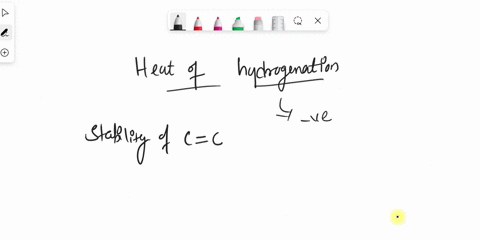 Heat of hydrogenation
-ve
Stability of C=C